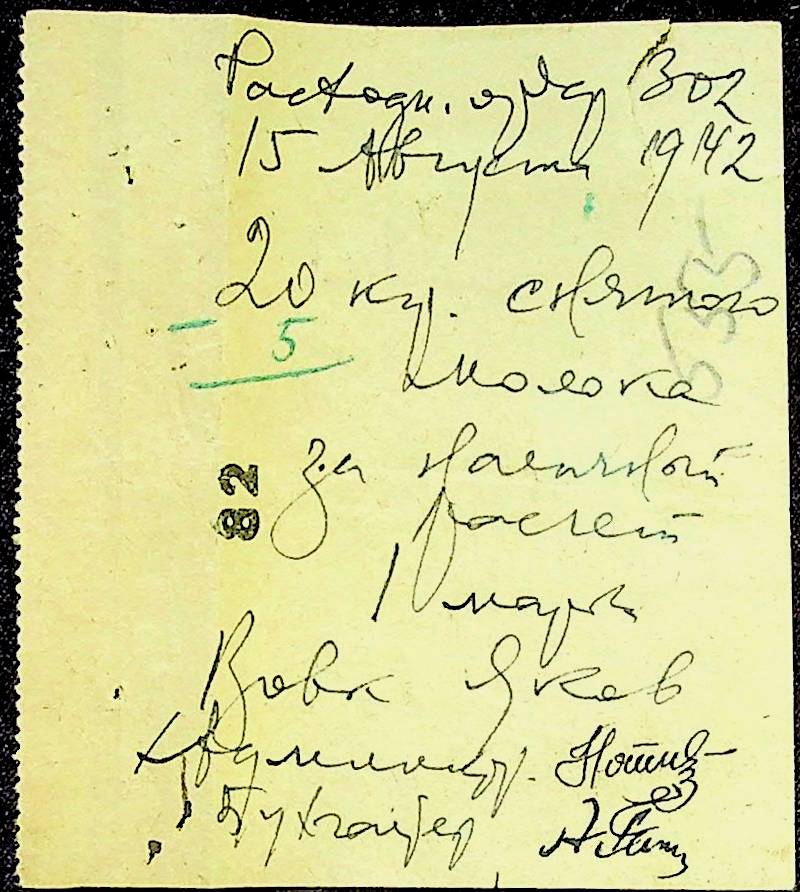 Расходн. ордер 302
15 Августа 1942
20 кг. снятого
- 5
молока
за наличный
82
расчет
1 марк
Вовк Яков
Администр.
Бухгалтер